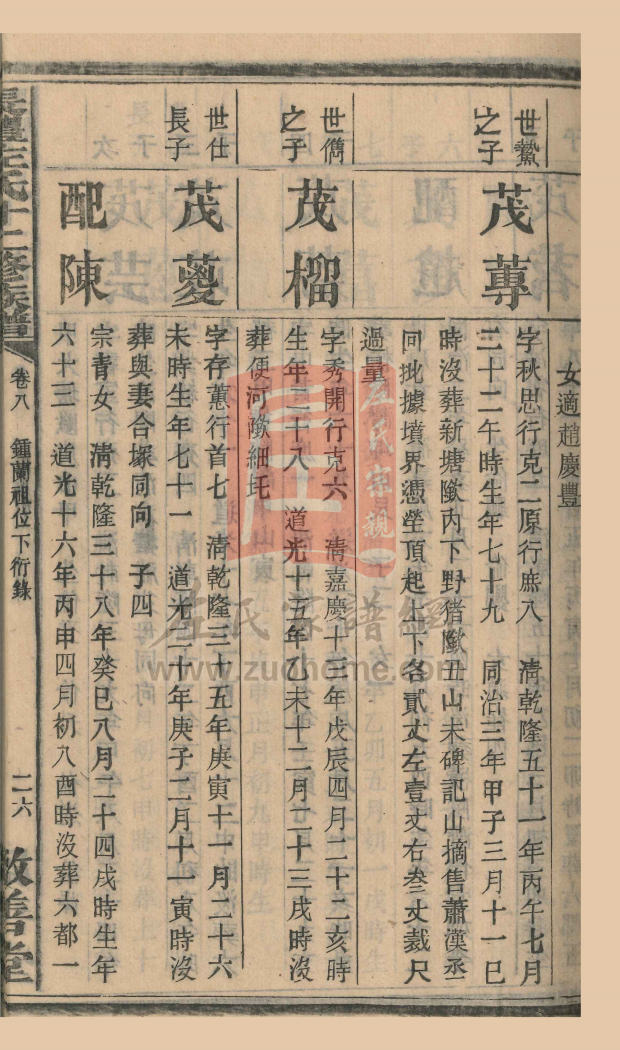 女適趙慶豐
世鷙
之子
茂蓴
字秋思行克二原行庶八 清乾隆五十一年丙午七月
二十二午時生年七十九 同治三年甲子三月十一巳
時沒葬新塘𡒄內下野猪𡒄丑山未碑記山摘售蕭漢丞
回批據墳界憑塋頂起上下各貳丈左壹丈右叁丈裁尺
過量
世儁
之子
茂榴
字秀開行克六 清嘉慶十三年戊辰四月二十二亥時
生年二十八 道光十五年乙未十二月二十三戌時沒
葬便河𡒄細圫
世仕
長子
茂薆
字存蕙行首七 清乾隆三十五年庚寅十一月二十六
未時生年七十一 道光二十年庚子二月十一寅時沒
葬與妻合塚同向 子四
配陳
宗青女 清乾隆三十八年癸巳八月二十四戌時生年
六十三 道光十六年丙申四月初八酉時沒葬六都一
左氏十二修族譜
卷八 鍾蘭祖位下衍錄
二六
敦善堂
左氏宗親
左氏家譜網
www.zuohome.com